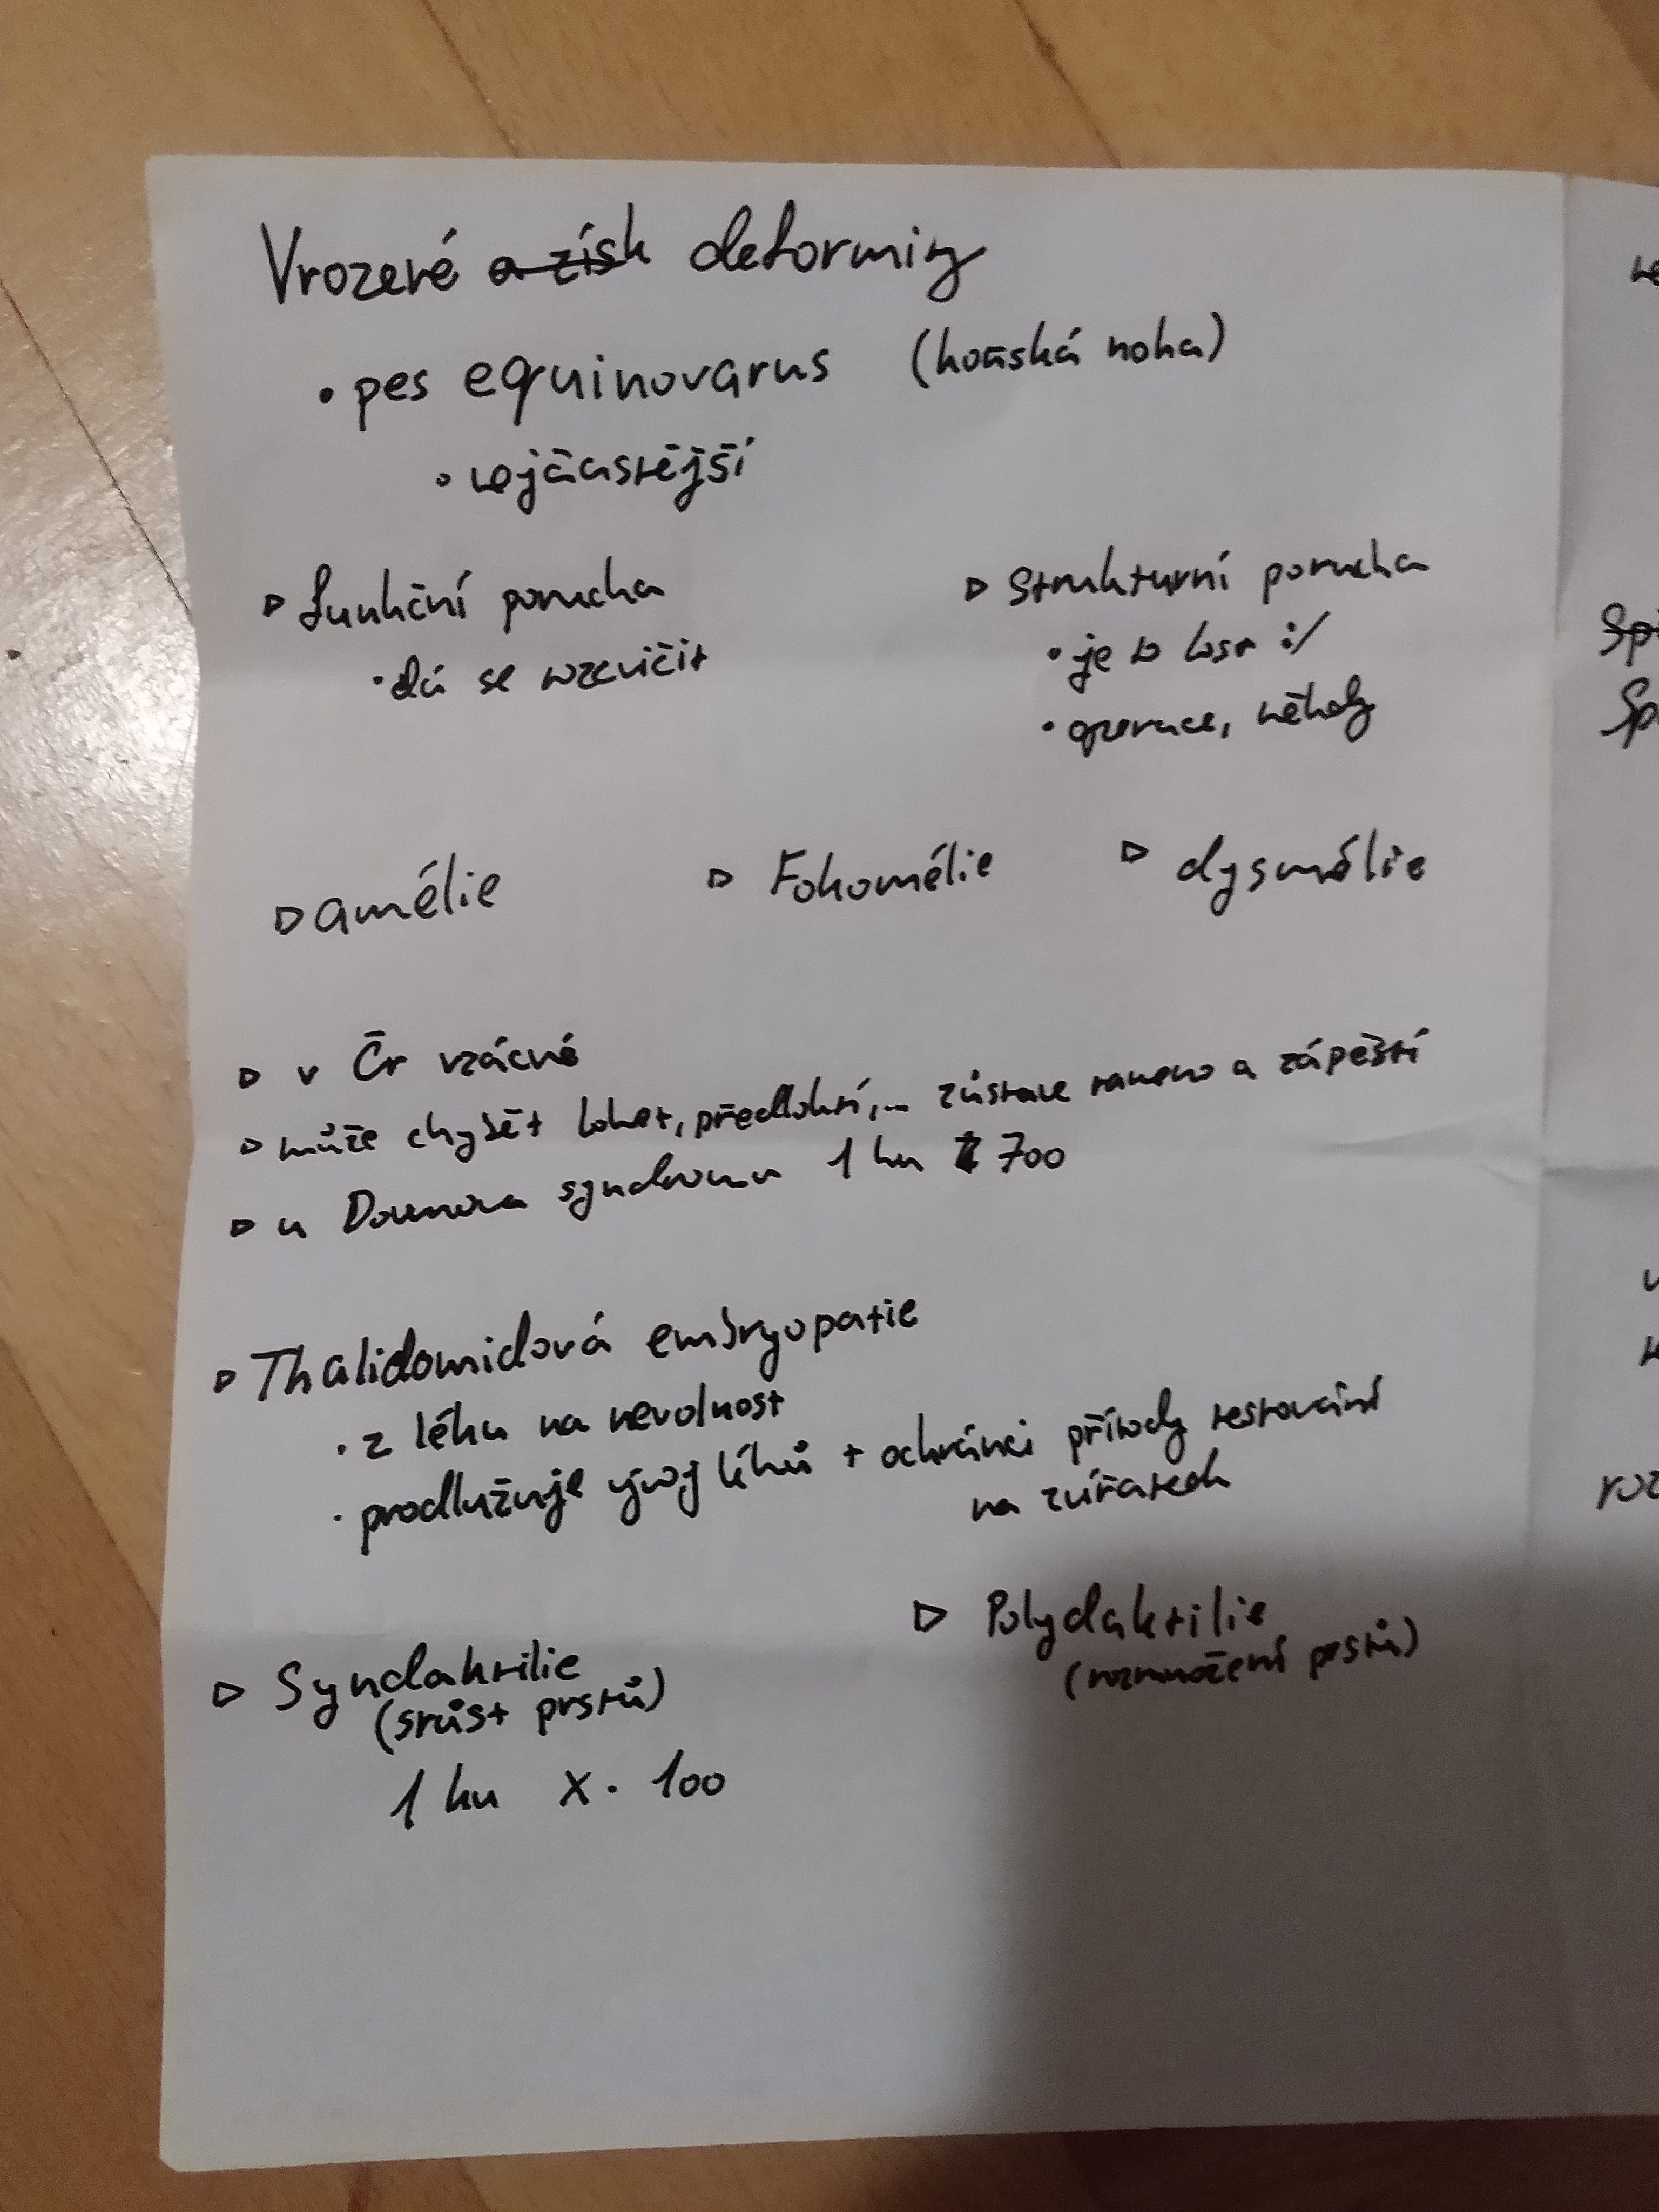 Vrozené a získ deformity
• pes equinovarus (koňská noha)
• nejčastější
▷ funkční porucha
• dá se rozcvičit
▷ strukturní porucha
• je to lost :/
• operace, někdy
▷ amélie ▷ Fokomélie ▷ dysmélie
▷ v Čr vzácné
▷ může chybět loket, předloktí,... zůstane rameno a zápěstí
▷ u Downova syndromu 1 ku 700
▷ Thalidomidová embryopatie
• z léku na nevolnost
• prodlužuje vývoj léků + ochránci přírody testování
na zvířatech
▷ Syndaktilie
(srůst prstů)
1 ku x • 100
▷ Polydaktilie
(rozmnožení prstů)
Sp
Sp
roz